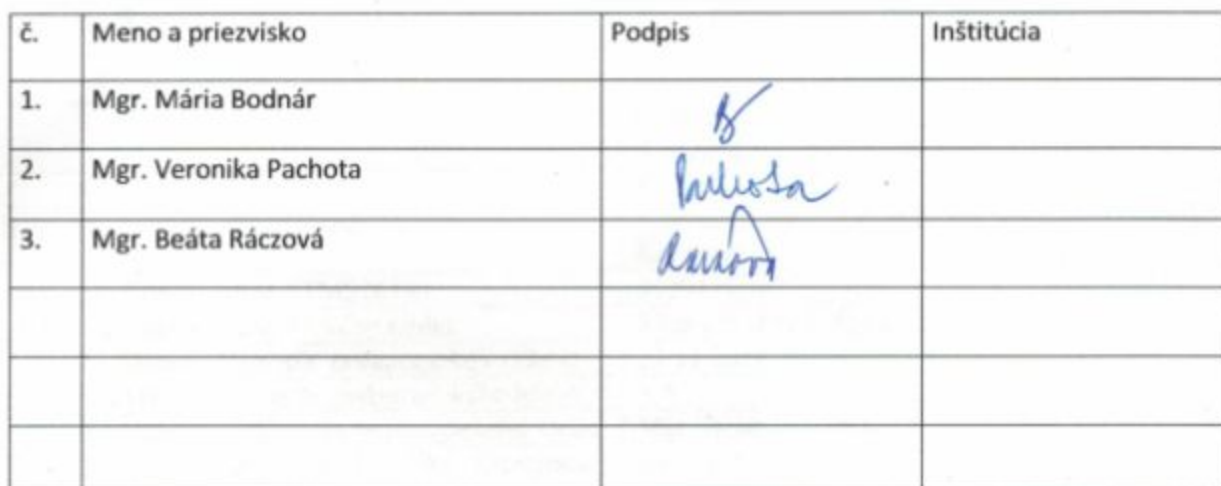 č. Meno a priezvisko Podpis Inštitúcia
1. Mgr. Mária Bodnár
2. Mgr. Veronika Pachota Pachota
3. Mgr. Beáta Ráczová